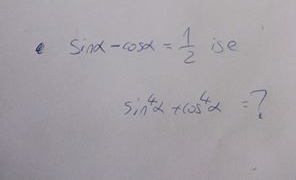 • sinα - cosα = 1/2 ise
sin⁴α + cos⁴α = ?